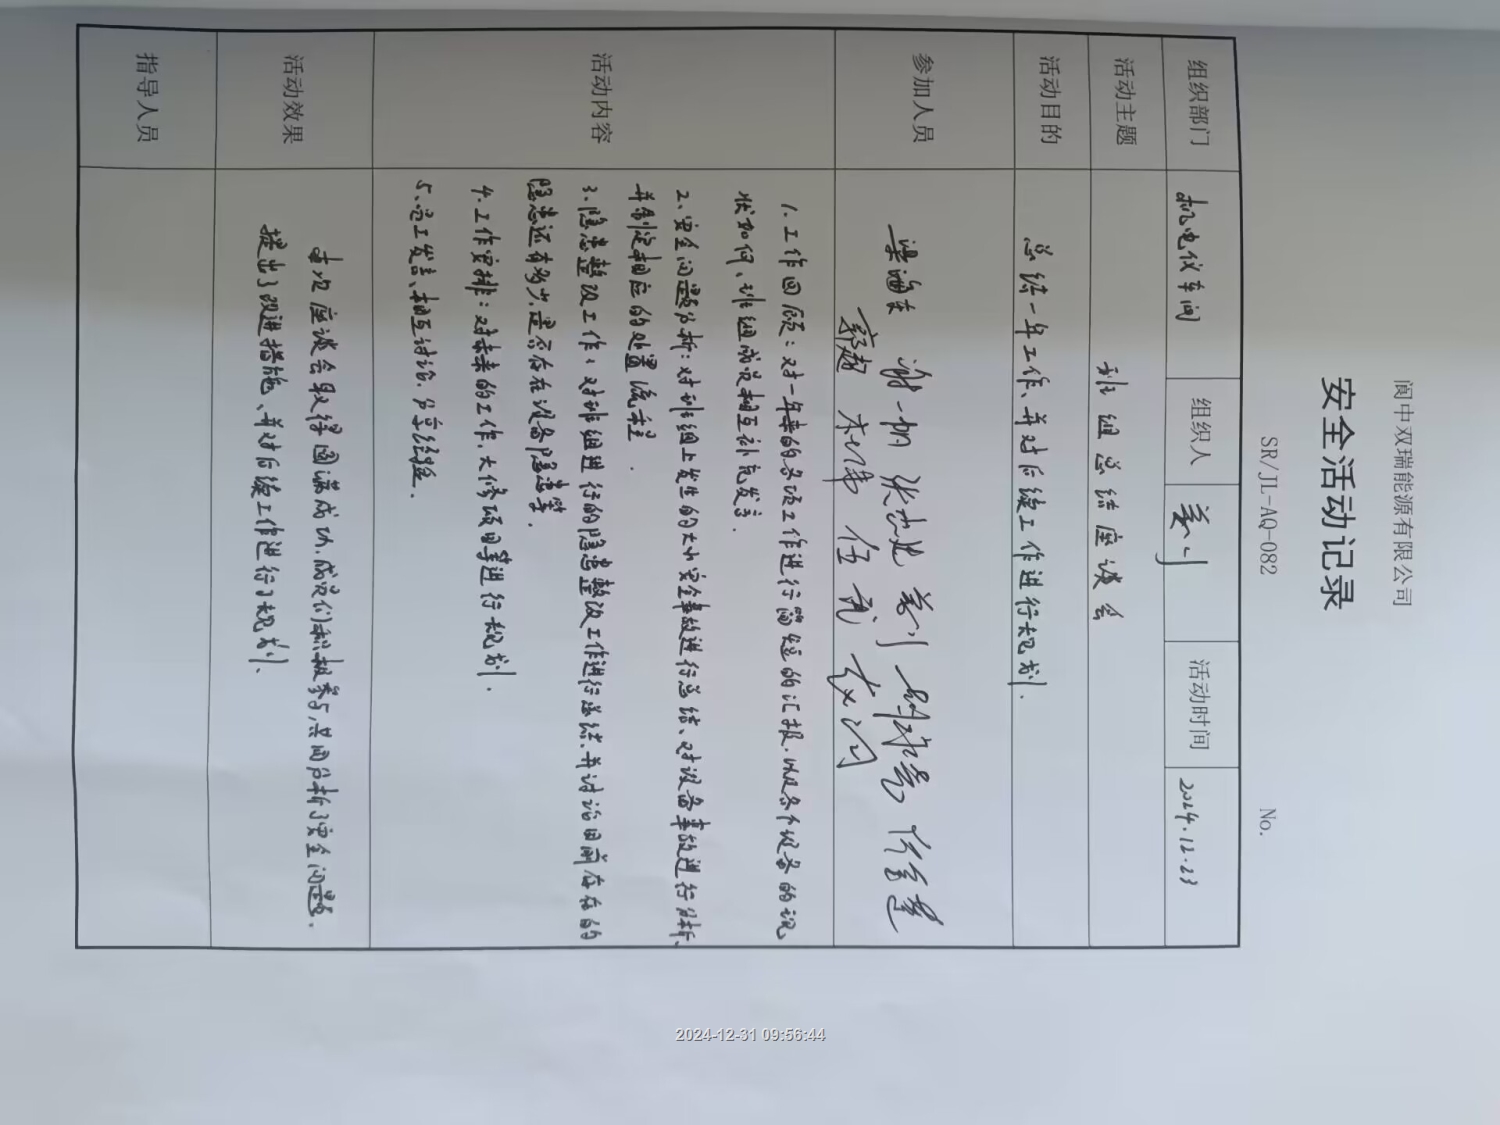 阆中双瑞能源有限公司
安全活动记录
SR/JL-AQ-082 No.
组织部门 机电仪车间 组织人 活动时间 2024.12.23
活动主题 班组总结座谈会
活动目的 总结一年工作、并对后续工作进行规划.
参加人员
活动内容
1.工作回顾：对一年来的各项工作进行简短的汇报.以及各个设备的现
状如何、班组成员相互补充发言.
2、安全问题分析：对班组上发生的大小安全事故进行总结、对设备事故进行分析、
并制定相应的处置流程.
3.隐患整改工作：对班组进行的隐患整改工作进行总结.并讨论目前存在的
隐患还有多少.是否存在设备隐患等.
4.工作安排：对未来的工作.大修项目等进行规划.
5、员工发言、相互讨论.分享经验.
活动效果
本次座谈会取得圆满成功.成员们积极参与,共同分析了安全问题.
提出了改进措施、并对后续工作进行了规划.
指导人员
2024-12-31 09:56:44